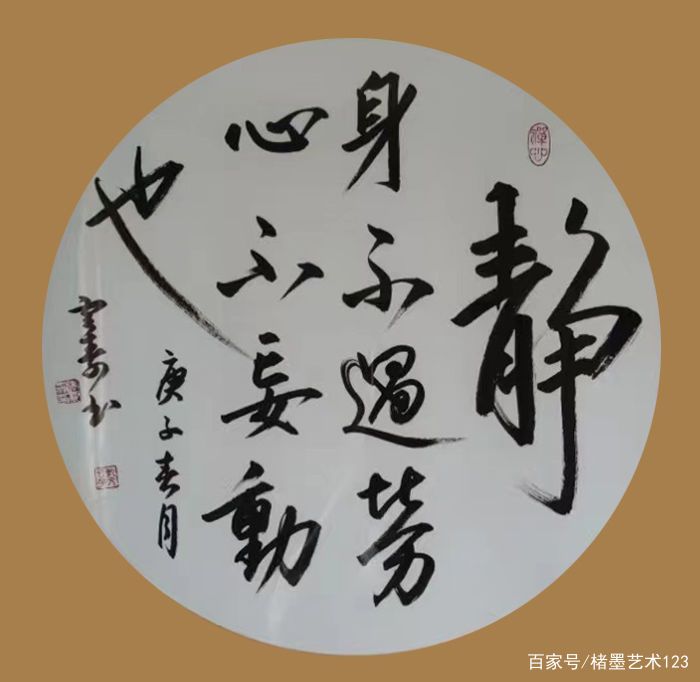 静
身不過勞
心不妄動
也
庚子春月
書
百家号/楮墨艺术123